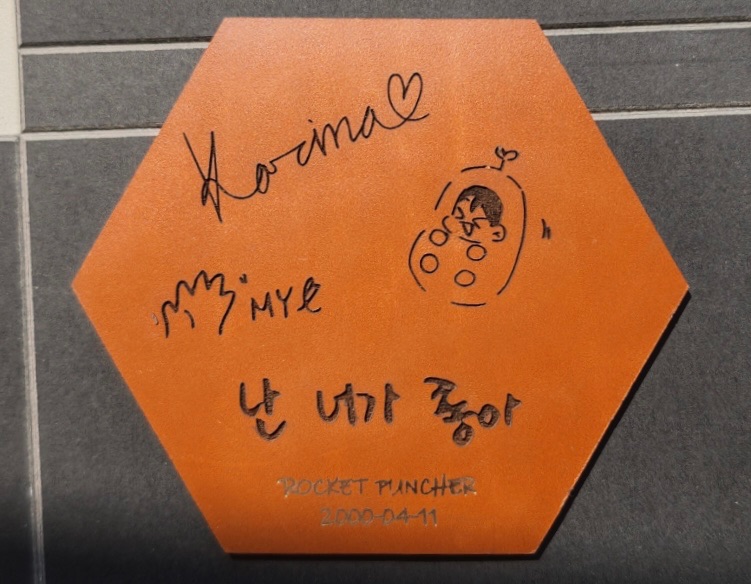 Karina
MY
난 너가 좋아
ROCKET PUNCHER
2000-04-11